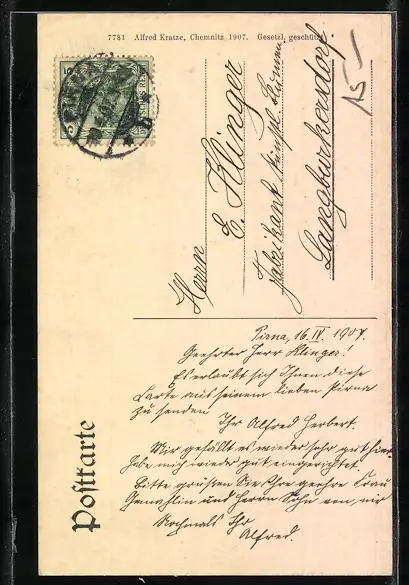 7781 Alfred Kratze, Chemnitz 1907. Gesetzl. geschützt.
15
Postkarte
Herrn
E. Klinger
Fabrikant künstl. Blumen
Langburkersdorf
Pirna, 16. IV. 1907.
Geehrter Herr Klinger!
Es erlaubt sich Ihnen diese
Karte aus seinem lieben Pirna
zu senden
Ihr Alfred Herbert.
Mir gefällt es wieder sehr gut hier.
Habe mich wieder gut eingerichtet.
Bitte grüßen Sie Ihre geehrte Frau
Gemahlin und Herrn Sohn von mir
Nochmals Ihr
Alfred.